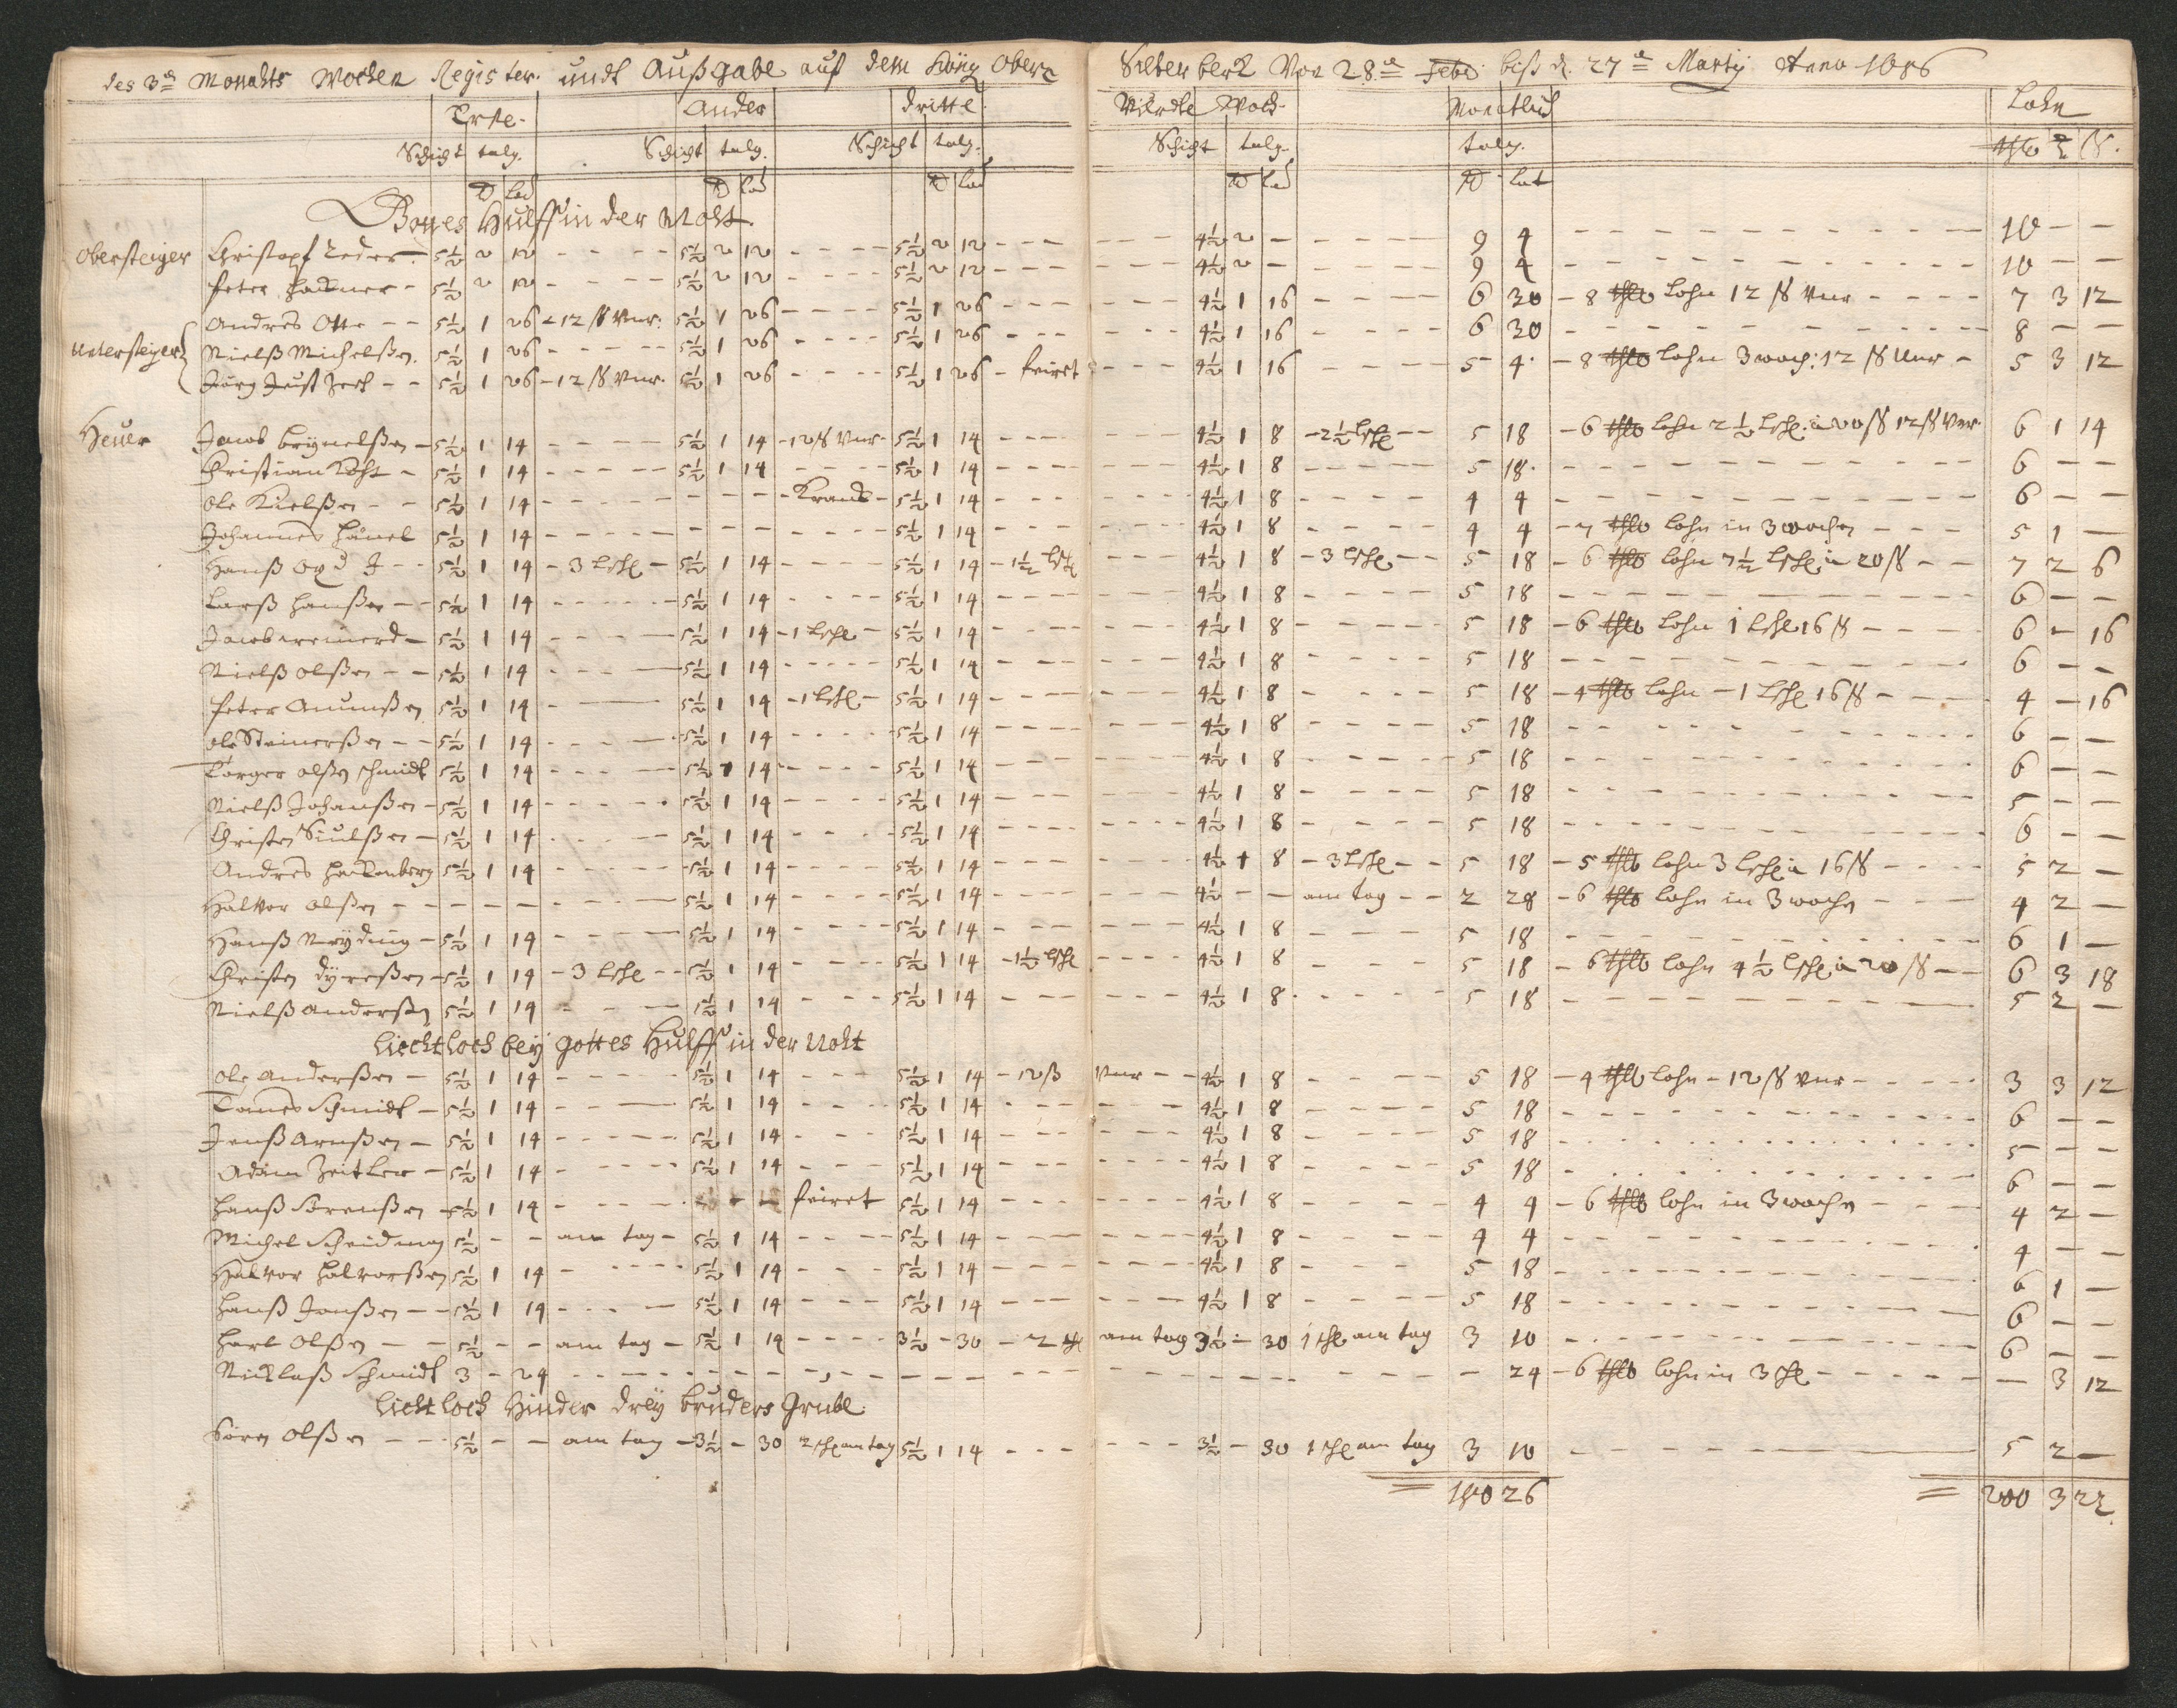 des 3ten Monahts Wochen Register undt Außgabe auf dem König Ober Silberberk Von 28ten Feb: biß d. 27ten Martij Anno 1686
Erste Ander dritte Vierdte Woch Monatlich Lohn
Schicht talg. Schicht talg. Schicht talg. Schicht talg. talg. thlr ß.
℔ Lod ℔ Lod ℔ Lod ℔ Lod ℔ Lot
Gottes Hulff in der Noht
Obersteiger Christopf Leder 5½ 2 12 - 5½ 2 12 - 5½ 2 12 - 4½ 2 - 9 4 - 10 - -
Peter 5½ 2 12 - 5½ 2 12 - 5½ 2 12 - 4½ 2 - 9 4 - 10 - -
Andres Otte 5½ 1 26 - 12 ß Unr. 5½ 1 26 - 5½ 1 26 - 4½ 1 16 - 6 30 - 8 thlr Lohn 12 ß Unr - 7 3 12
Untersteiger Nielß Michelßen 5½ 1 26 - 5½ 1 26 - 5½ 1 26 - 4½ 1 16 - 6 30 - 8 - -
Jörg Just 5½ 1 26 - 12 ß Unr. 5½ 1 26 - 5½ 1 26 - feiret - 4½ 1 16 - 5 4 - 8 thlr Lohn 3 woch: 12 ß Unr - 5 3 12
Heuer Jacob 5½ 1 14 - 5½ 1 14 - 12 ß Unr - 5½ 1 14 - 4½ 1 8 - 2½ Lschl - 5 18 - 6 thlr Lohn 2½ Lschl. à 20 ß 12 ß Unr. 6 1 14
Christian Koht 5½ 1 14 - 5½ 1 14 - 5½ 1 14 - 4½ 1 8 - 5 18 - 6 - -
Ole Nielßen 5½ 1 14 - Kranck - 5½ 1 14 - 4½ 1 8 - 4 4 - 6 - -
Johannes 5½ 1 14 - 5½ 1 14 - 4½ 1 8 - 4 4 - 7 thlr Lohn in 3 wochen - 5 1 -
Hanß 5½ 1 14 - 3 Lschl - 5½ 1 14 - 5½ 1 14 - 1½ Lschl - 4½ 1 8 - 3 Lschl - 5 18 - 6 thlr Lohn 7½ Lschl à 20 ß - 7 2 6
Larß Hanßen 5½ 1 14 - 5½ 1 14 - 5½ 1 14 - 4½ 1 8 - 5 18 - 6 - -
Jacob 5½ 1 14 - 5½ 1 14 - 1 Lschl - 5½ 1 14 - 4½ 1 8 - 5 18 - 6 thlr Lohn 1 Lschl 16 ß - 6 - 16
Nielß Olßen 5½ 1 14 - 5½ 1 14 - 5½ 1 14 - 4½ 1 8 - 5 18 - 6 - -
Peter 5½ 1 14 - 5½ 1 14 - 1 Lschl - 5½ 1 14 - 4½ 1 8 - 5 18 - 4 thlr Lohn - 1 Lschl 16 ß - 4 - 16
Ole Steinerßen 5½ 1 14 - 5½ 1 14 - 5½ 1 14 - 4½ 1 8 - 5 18 - 6 - -
Törger Olßen Schmidt 5½ 1 14 - 5½ 1 14 - 5½ 1 14 - 4½ 1 8 - 5 18 - 6 - -
Nielß Johanßen 5½ 1 14 - 5½ 1 14 - 5½ 1 14 - 4½ 1 8 - 5 18 - 5 - -
Christen 5½ 1 14 - 5½ 1 14 - 5½ 1 14 - 4½ 1 8 - 5 18 - 6 - -
Andres 5½ 1 14 - 5½ 1 14 - 5½ 1 14 - 4½ 1 8 - 3 Lschl - 5 18 - 5 thlr Lohn 3 Lschl à 16 ß - 5 2 -
Halvor Olßen - 5½ 1 14 - 5½ 1 14 - 4½ - - am tag - 2 28 - 6 thlr Lohn in 3 wochen - 4 2 -
Hanß 5½ 1 14 - 5½ 1 14 - 5½ 1 14 - 4½ 1 8 - 5 18 - 6 1 -
Christen 5½ 1 14 - 3 Lschl - 5½ 1 14 - 5½ 1 14 - 1½ Lschl - 4½ 1 8 - 5 18 - 6 thlr Lohn 4½ Lschl à 20 ß - 6 3 18
Nielß Anderßen 5½ 1 14 - 5½ 1 14 - 5½ 1 14 - 4½ 1 8 - 5 18 - 5 2 -
Liechtloch bey Gottes Hulff in der Noht
Ole Anderßen 5½ 1 14 - 5½ 1 14 - 5½ 1 14 - 12 ß Unr - 4½ 1 8 - 5 18 - 4 thlr Lohn - 12 ß Unr - 3 3 12
Tomes Schmidt 5½ 1 14 - 5½ 1 14 - 5½ 1 14 - 4½ 1 8 - 5 18 - 6 - -
Jenß Arnßen 5½ 1 14 - 5½ 1 14 - 5½ 1 14 - 4½ 1 8 - 5 18 - 5 - -
Adam Zeitler 5½ 1 14 - 5½ 1 14 - 5½ 1 14 - 4½ 1 8 - 5 18 - 6 - -
Hanß Sörenßen 5½ 1 14 - feiret 5½ 1 14 - 4½ 1 8 - 4 4 - 6 thlr Lohn in 3 wochen - 4 2 -
Michel 5½ - - am tag - 5½ 1 14 - 5½ 1 14 - 4½ 1 8 - 4 4 - 4 - -
Halvor Halvorßen 5½ 1 14 - 5½ 1 14 - 5½ 1 14 - 4½ 1 8 - 5 18 - 6 1 -
Hanß Jonßen 5½ 1 14 - 5½ 1 14 - 5½ 1 14 - 4½ 1 8 - 5 18 - 6 - -
Olßen 5½ - - am tag - 5½ 1 14 - 3½ - 30 - 2 schl am tag 3½ - 30 1 schl am tag 3 10 - 6 - -
Nicklaß Schmidt 3 - 24 - 24 - 6 thlr Lohn in 3 schl - 3 12
Liecht loch Hinder drey Bruders Grube
Sören Olßen 5½ - - am tag - 3½ - 30 2 schl am tag 5½ 1 14 - 3½ - 30 1 schl am tag 3 10 - 5 2 -
180 26 200 3 22